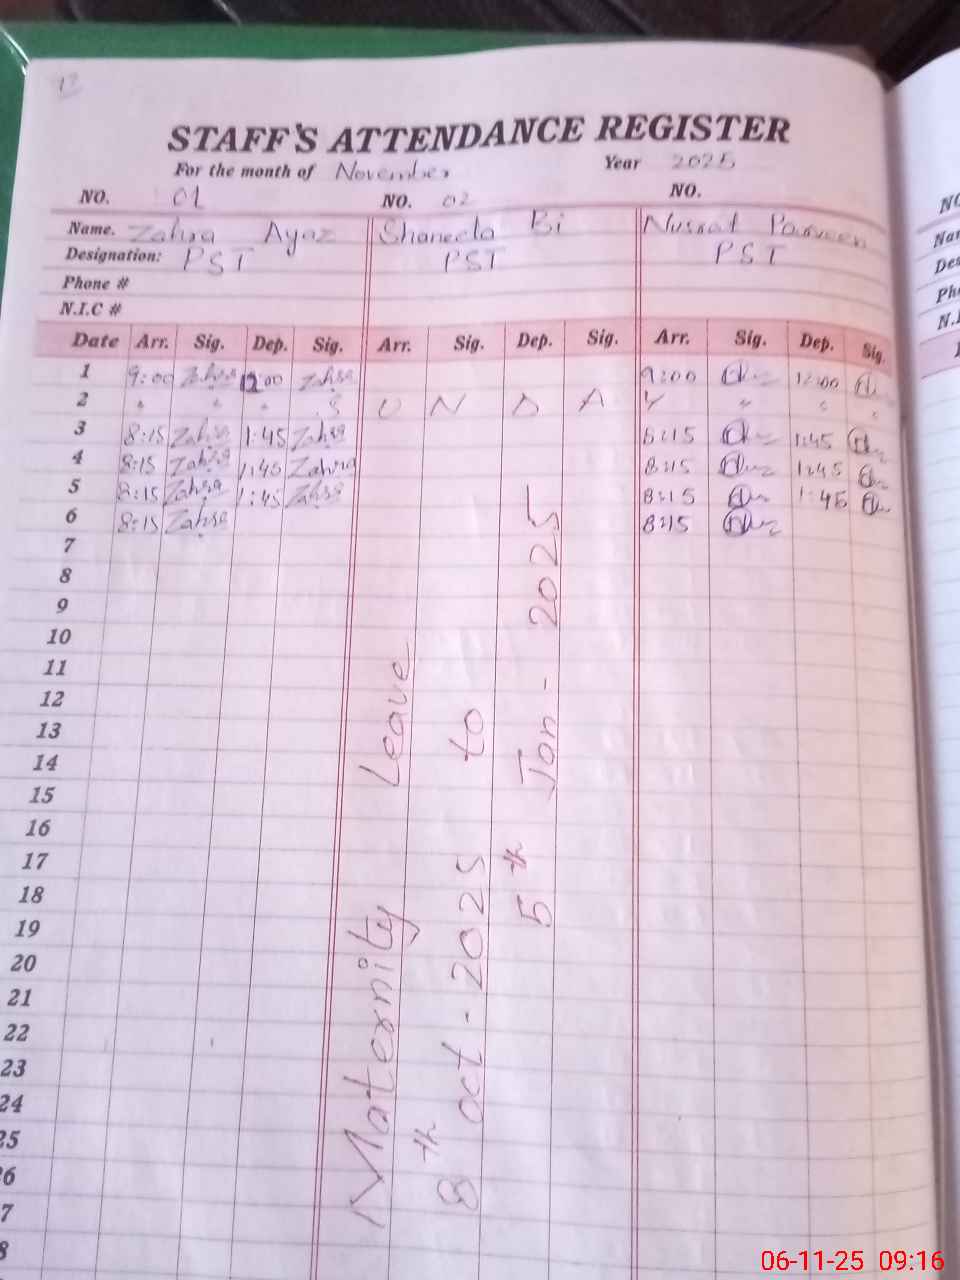 17
STAFF'S ATTENDANCE REGISTER
For the month of November Year 2025
NO. 01 NO. 02 NO.
Name. Zahra Ayaz Shaneela Bi Nusrat Parveen
Designation: PST PST PST
Phone #
N.I.C #
Date Arr. Sig. Dep. Sig. Arr. Sig. Dep. Sig. Arr. Sig. Dep. Sig.
1 9:00 Zahra 12:00 Zahra 9:00 12:00
2 " " " S U N D A Y " " "
3 8:15 Zahra 1:45 Zahra 8:15 1:45
4 8:15 Zahra 1:45 Zahra 8:15 1:45
5 8:15 Zahra 1:45 Zahra 8:15 1:45
6 8:15 Zahra 8:15
7
8
9
10
11
12
13
14
15
16
17
18
19
20
21
22
23
24
25
6
7
8
Maternity Leave
8th oct - 2025 to
5th Jan - 2025
NO
Nam
Des
Ph
N.I
06-11-25 09:16